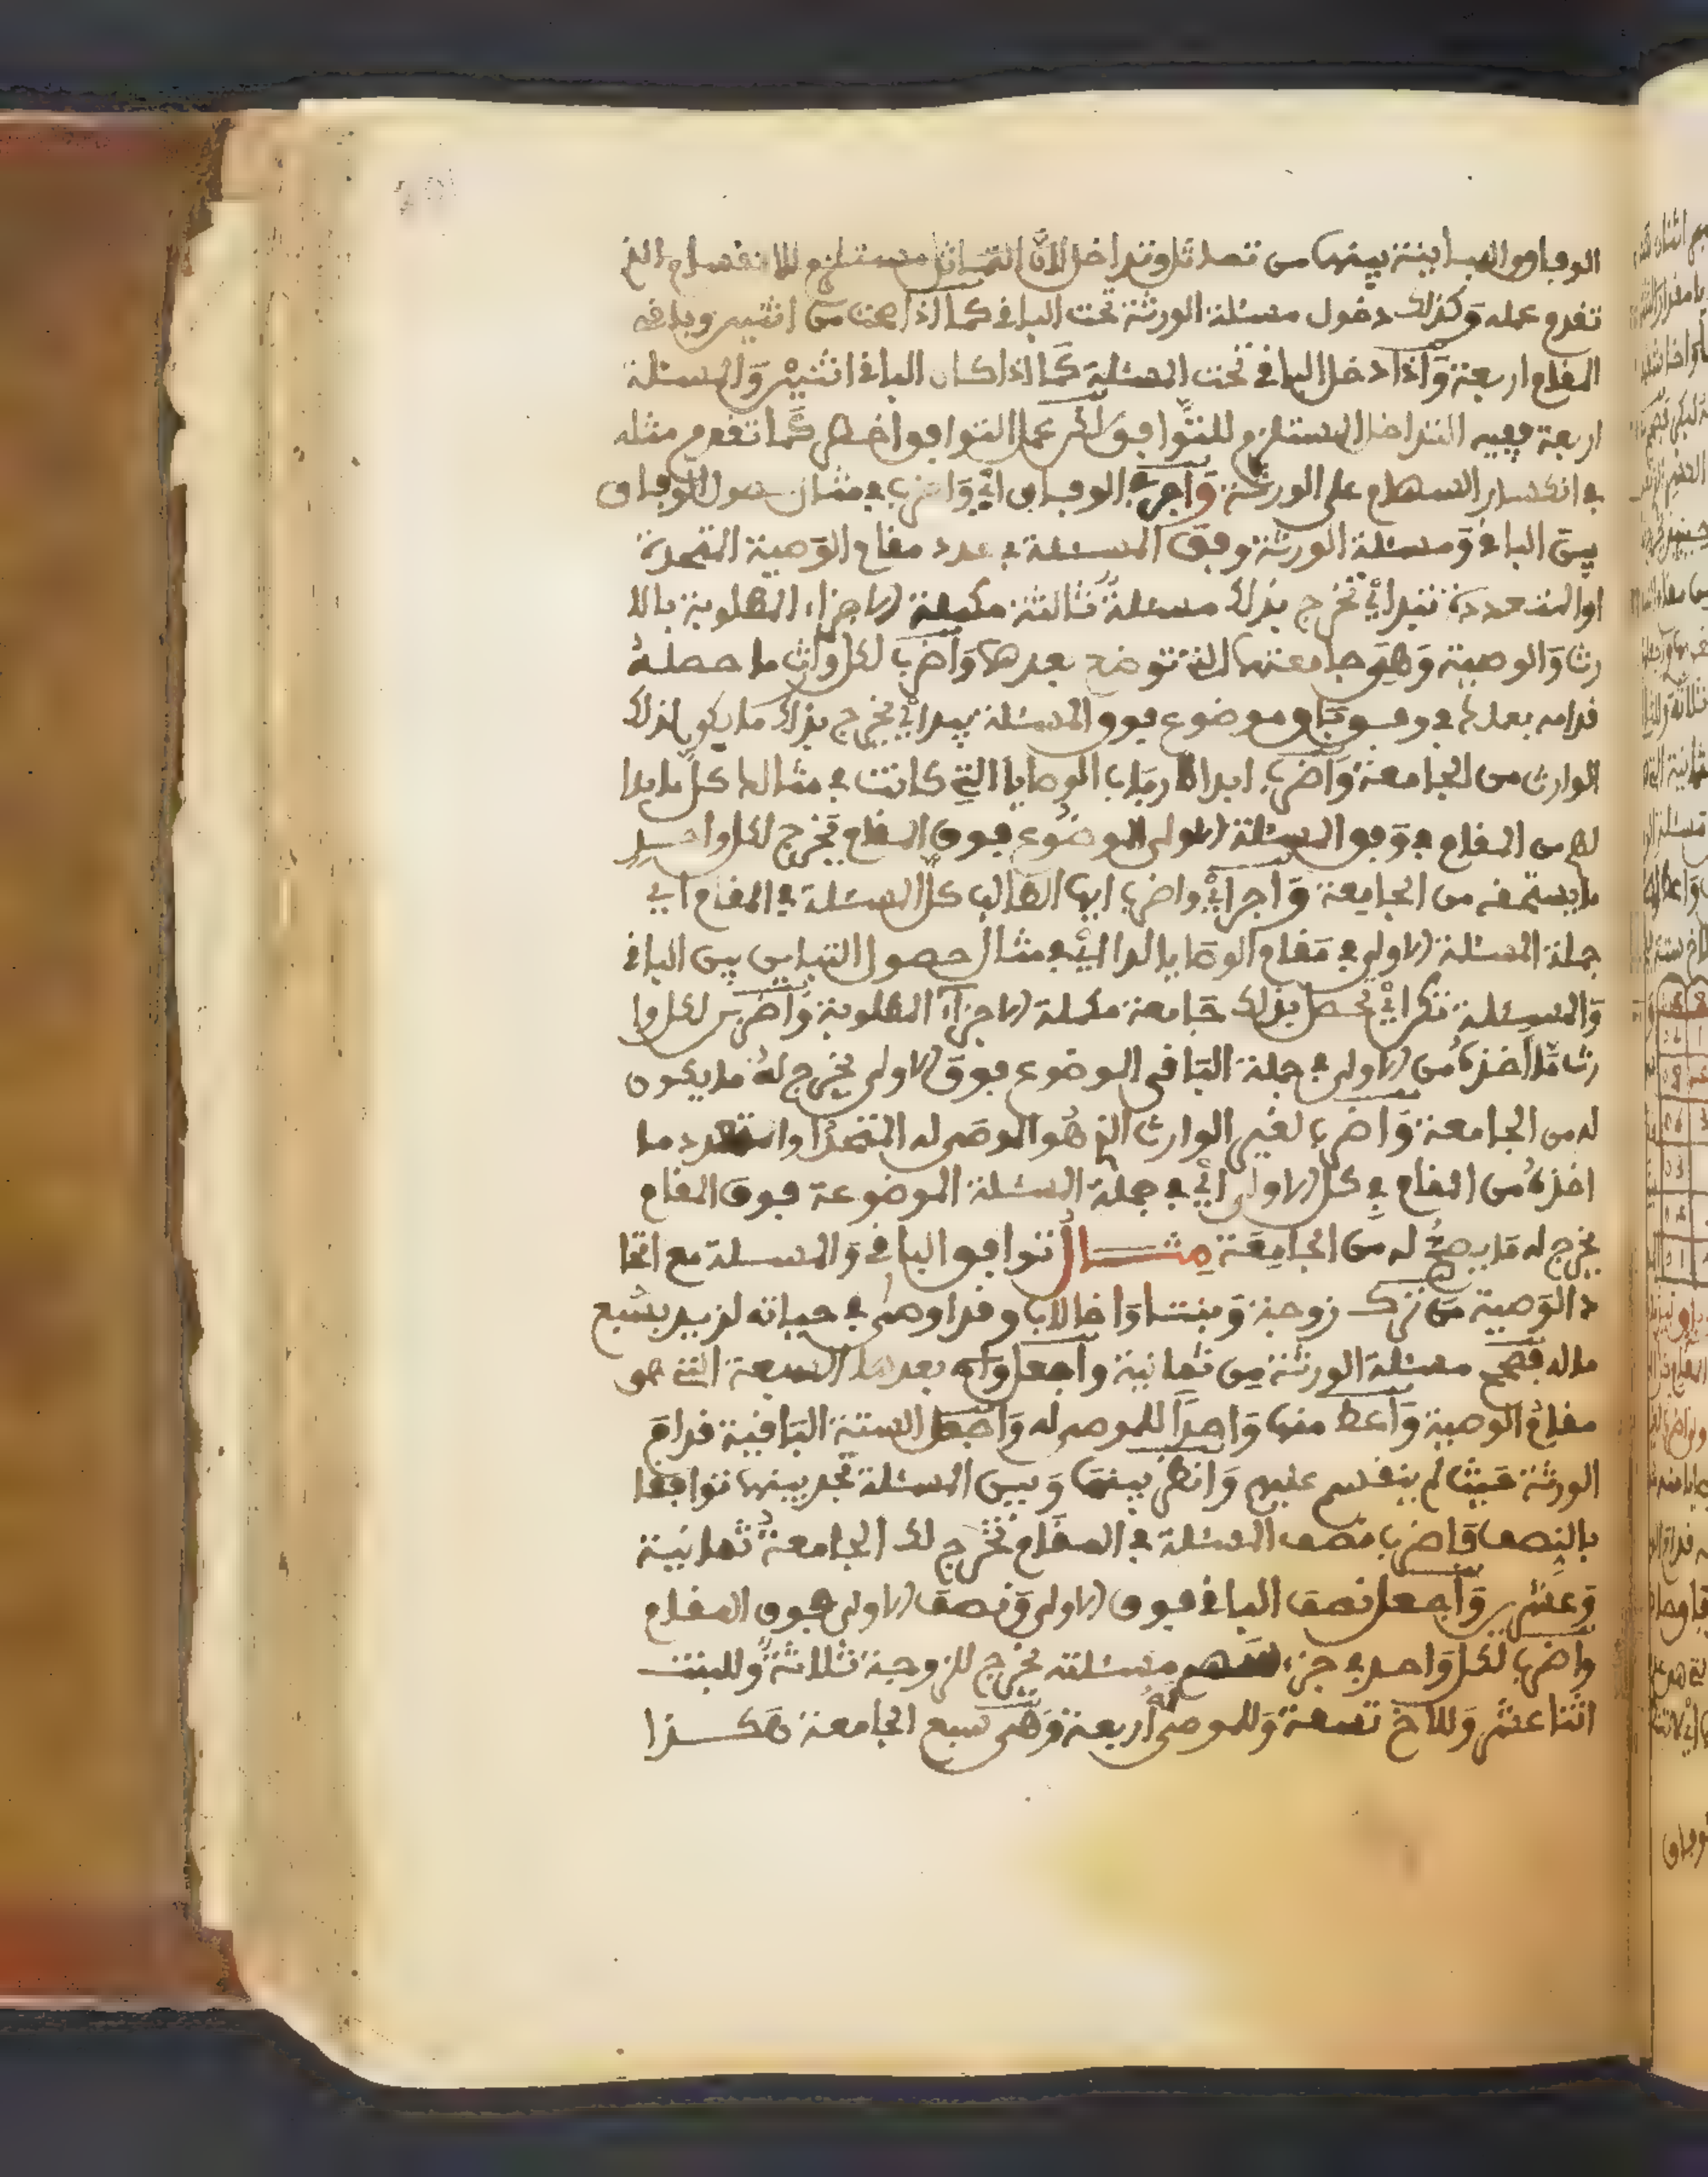 الوفاق والمباينة بينها من تماثل وتداخل لأن التماثل مستلزم للانقسام الذي
تقدم عمله وكذلك دخول مسئلة الورثة تحت الباقي كما اذا صحت من اثنين وباقي
المقام اربعة واذا دخل الباقي تحت المسئلة كما اذا كان الباقي اثنين والمسئلة
اربعة ففيه التداخل المستلزم للتوافق عمل التوافق اخصر كما تقدم مثله
في انكسار السهام على الورثة واجر في الوفاق أي واضرب في مثال حصول الوفاق
بين الباقي ومسئلة الورثة وفق المسئلة في عدد مقام الوصية المتحدة
او المتعددة تبدا أي تخرج بذلك مسئلةٌ ثالثة مكملة الاجزاء المطلوبة بالا
رث والوصية وهي جامعتها التي توضع بعدها واضرب لكل وارث ما حصله
قدامه بعدله في وفق باق موضوع فوق المسئلة يبدا أي يخرج بذلك ما يكون لذلك
الوارث من الجامعة واضرب ابدا لارباب الوصايا التي كانت في مثالها كل ما بدا
لهم من المقام في وفق المسئلة الاولى الموضوع فوق المقام يخرج لكل واحد
ما يستحقه من الجامعة واجر أي واضرب ايها الطالب كل المسئلة في المقام أي
جملة المسئلة الاولى في مقام الوصايا لدا أي في مثال حصول التباين بين الباقي
والمسئلة تكرا أي يحصل بذلك جامعة مكملة الاجزاء المطلوبة واضربن لكل وا
رث ما اخذه من الاولى في جملة الباقي الموضوع فوق الاولى يخرج له ما يكون
له من الجامعة واضرب لغير الوارث الذي هو الموصى له المتحد او المتعدد ما
اخذه من المقام في كل الاولى أي في جملة المسئلة الموضوعة فوق المقام
يخرج له ما يصح له من الجامعة مثال توافق الباقي والمسئلة مع اتحا
د الوصية من ترك زوجة وبنتا واخا لاب وقد اوصى في حياته لزيد بسبع
ماله فتصح مسئلة الورثة من ثمانية واجعل بعدها السبعة التي هو
مقام الوصية واعط منها واحدا للموصى له واجعل الستة الباقية قدام
الورثة حيث لم ينقسم عليهم وانظر بينها وبين المسئلة تجد بينها توافقا
بالنصف فاضرب نصف المسئلة في المقام تخرج لك الجامعة ثمانية
وعشرين واجعل نصف الباقي فوق الاولى ونصف الاولى فوق المقام
واضرب لكل واحد في جزء سهم مسئلته يخرج للزوجة ثلاثة وللبنت
اثنا عشر وللاخ تسعة وللموصى له اربعة وهي سبع الجامعة هكذا